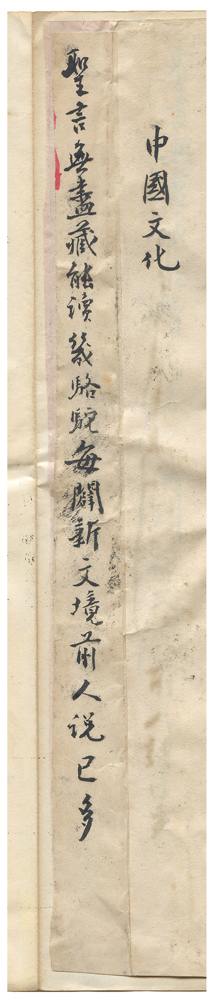 中國文化
聖言無盡藏能讀幾駱駝每闢新文境前人説已多